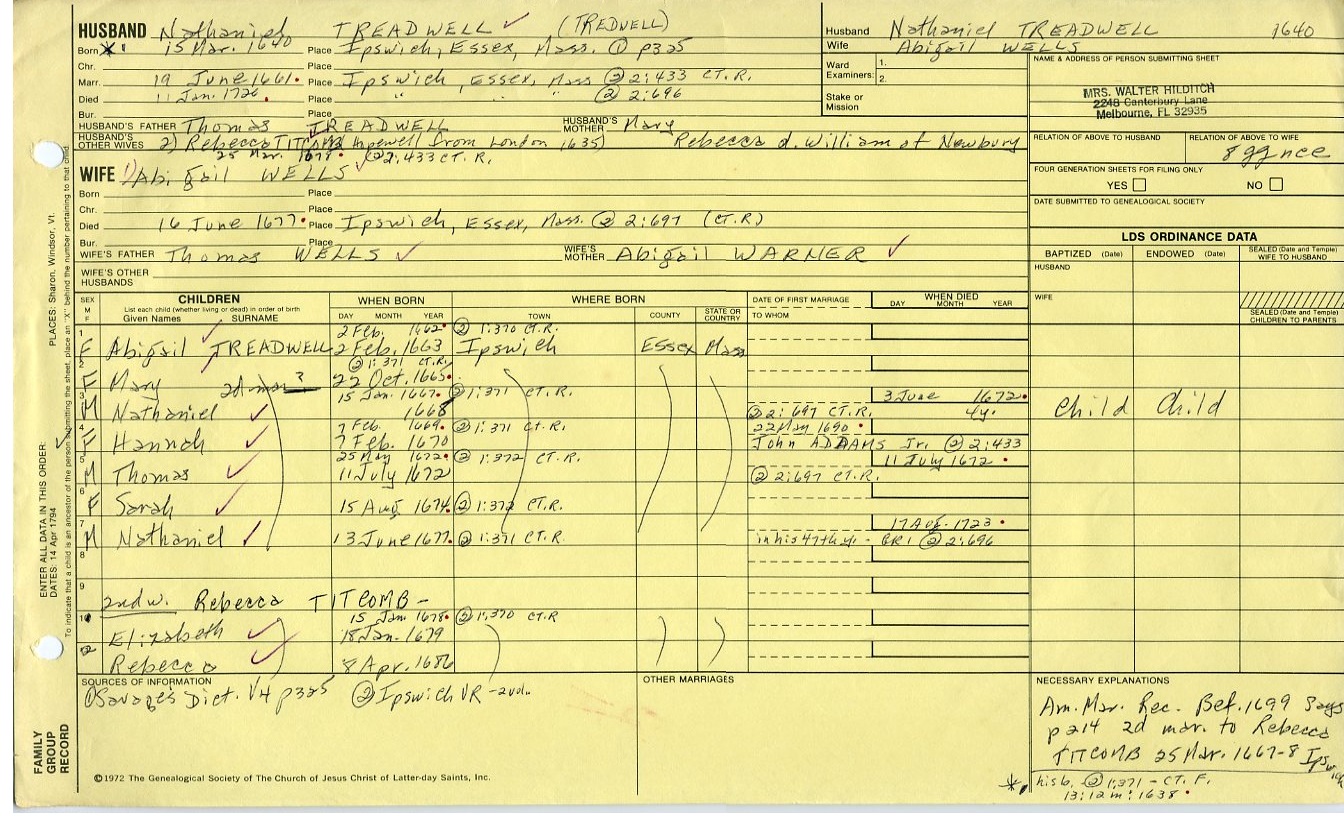 HUSBAND Nathaniel TREADWELL (TREDWELL)
Born 15 Mar. 1640 Place Ipswich, Essex, Mass. ① p325
Chr. Place
Marr. 19 June 1661. Place Ipswich, Essex, Mass ② 2:433 CT.R.
Died 11 Jan. 1726. Place " " " ② 2:696
Bur. Place
HUSBAND'S FATHER Thomas TREADWELL HUSBAND'S MOTHER Mary
HUSBAND'S OTHER WIVES 2) Rebecca TITCOMB Hopewell from London 1635) Rebecca d. William of Newbury
25 Mar. 1678. ② 2:433 CT. R.
WIFE 1) Abigail WELLS
Born Place
Chr. Place
Died 16 June 1677. Place Ipswich, Essex, Mass. ② 2:697 (CT.R)
Bur. Place
WIFE'S FATHER Thomas WELLS WIFE'S MOTHER Abigail WARNER
WIFE'S OTHER HUSBANDS
Husband Nathaniel TREADWELL 1640
Wife Abigail WELLS
Ward Examiners: 1.
2.
Stake or Mission
NAME & ADDRESS OF PERSON SUBMITTING SHEET
MRS. WALTER HILDITCH
2248 Canterbury Lane
Melbourne, FL 32935
RELATION OF ABOVE TO HUSBAND RELATION OF ABOVE TO WIFE
8 gg nce
FOUR GENERATION SHEETS FOR FILING ONLY
YES NO
DATE SUBMITTED TO GENEALOGICAL SOCIETY
LDS ORDINANCE DATA
BAPTIZED (Date) ENDOWED (Date) SEALED (Date and Temple) WIFE TO HUSBAND
HUSBAND
WIFE
SEALED (Date and Temple) CHILDREN TO PARENTS
SEX M F
CHILDREN
List each child (whether living or dead) in order of birth
Given Names SURNAME
WHEN BORN
DAY MONTH YEAR
WHERE BORN
TOWN COUNTY STATE OR COUNTRY
DATE OF FIRST MARRIAGE
TO WHOM
WHEN DIED
DAY MONTH YEAR
2 Feb. 1662. ② 1:370 CT.R.
1 F Abigail TREADWELL 2 Feb. 1663 Ipswich Essex Mass
② 1:371 CT.R.
2 F Mary 2d mar ? 22 Oct. 1665.
15 Jan. 1667. ② 1:371 CT.R. 3 June 1672.
3 M Nathaniel 1668 ② 2:697 CT.R. 4y. Child Child
7 Feb. 1669. ② 1:371 Ct.R. 22 May 1690.
4 F Hannah 7 Feb. 1670 John ADDAMS Jr. ② 2:433
25 May 1672. ② 1:372 CT.R. 11 July 1672.
5 M Thomas 11 July 1672 ② 2:697 CT.R.
6 F Sarah 15 Aug 1674. ② 1:372 CT.R.
17 Aug. 1723.
7 M Nathaniel 13 June 1677. ② 1:371 CT.R. in his 47th y. - GR1 ② 2:696
8
9
2nd w. Rebecca TITCOMB -
15 Jan 1678. ② 1:370 CT.R
1 Elizabeth 18 Jan. 1679
2 Rebecca 8 Apr. 1686
SOURCES OF INFORMATION
① Savage's Dict. V4 p325 ② Ipswich VR - 2vol.
OTHER MARRIAGES
NECESSARY EXPLANATIONS
Am. Mar. Rec. Bef. 1699 says
p214 2d mar. to Rebecca
TITCOMB 25 Mar. 1667-8 Ipswich
* his b. ② 1:371 - CT. F.
13:12m:1638.
©1972 The Genealogical Society of The Church of Jesus Christ of Latter-day Saints, Inc.
FAMILY GROUP RECORD
ENTER ALL DATA IN THIS ORDER:
DATES: 14 Apr 1794
PLACES: Sharon, Windsor, Vt.
To indicate that a child is an ancestor of the person submitting the sheet, place an "X" behind the number pertaining to that child.